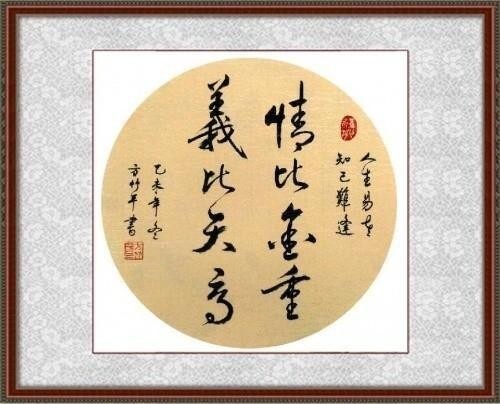 人生易老
知己難逢
情比金重
義比天高
乙未年冬
方竹平書